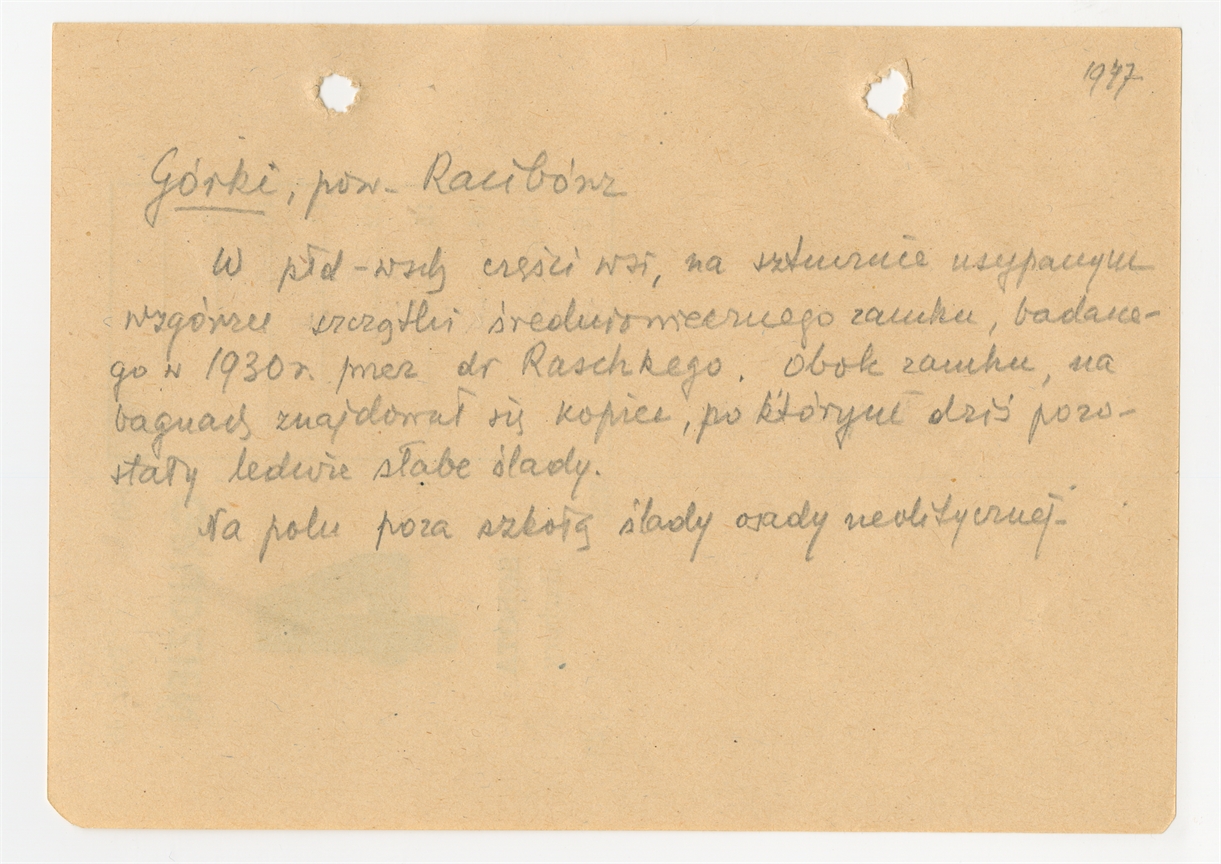 1947
Górki, pow. Racibórz
W płd-wsch części wsi, na sztucznie usypanym
wzgórzu szczątki średniowiecznego zamku, badane-
go w 1930 r. przez dr Raschkego. Obok zamku, na
bagnach znajdował się kopiec, po którym dziś pozo-
stały ledwie słabe ślady.
Na polu poza szkołą ślady osady neolitycznej-